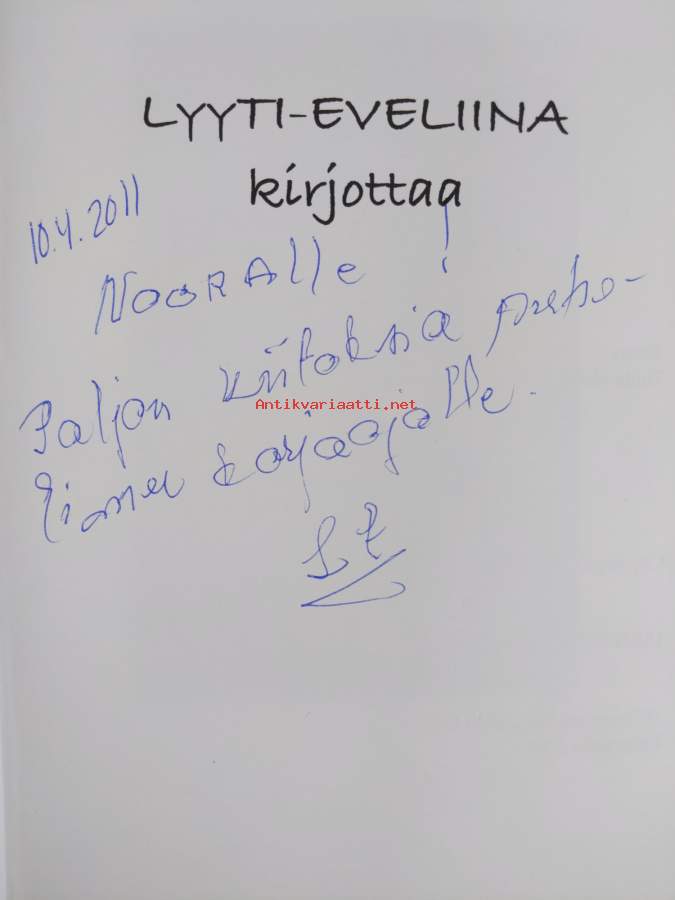 LYYTI-EVELIINA
kirjottaa
10.4.2011
NOORAlle!
Paljon kiitoksia puhe-
limen korjaajalle.
Antikvariaatti.net
LE